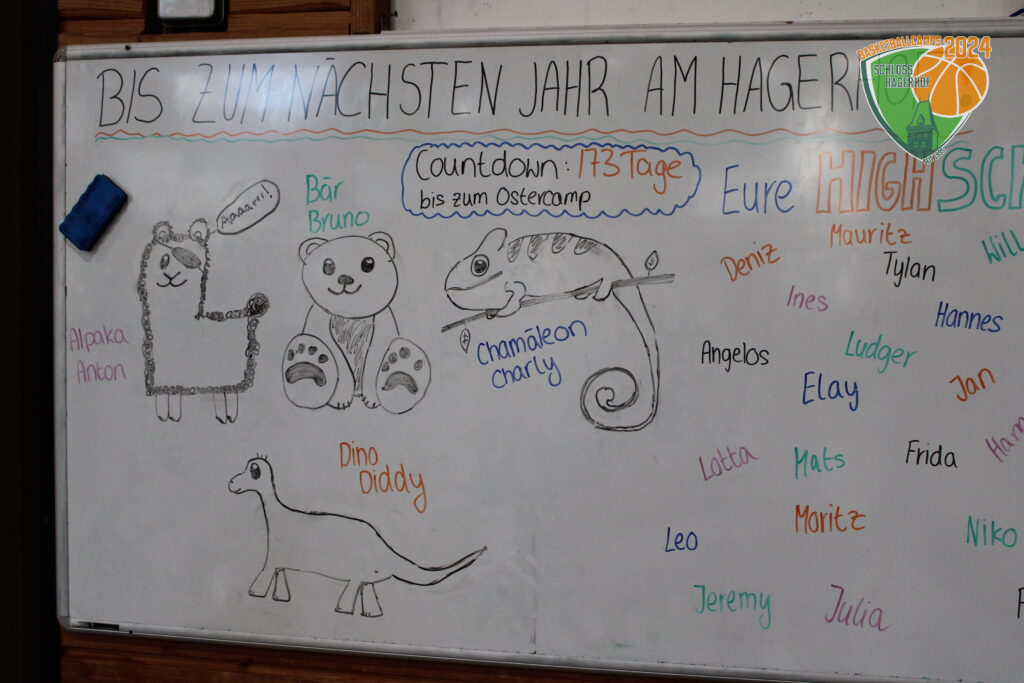 BIS ZUM NÄCHSTEN JAHR AM HAGERHOF
BASKETBALLCAMPS
2024
SCHLOSS
HAGERHOF
Countdown: 173 Tage
bis zum Ostercamp
Eure HIGHSC
Aaaarrr!
Bär
Bruno
Alpaka
Anton
Chamäleon
Charly
Dino
Diddy
Mauritz
Will
Deniz
Tylan
Ines
Hannes
Angelos
Ludger
Elay
Jan
Lotta
Mats
Frida
Ham
Moritz
Leo
Niko
Jeremy
Julia